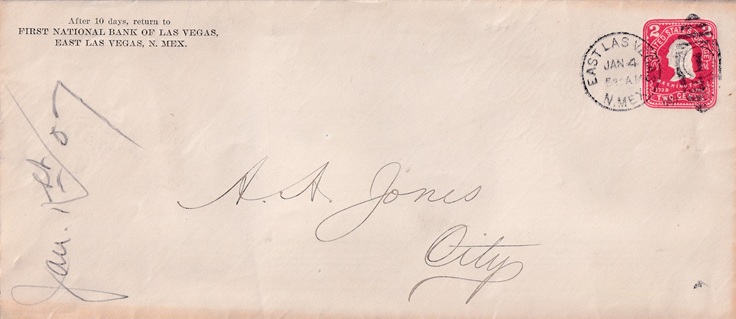 After 10 days, return to
FIRST NATIONAL BANK OF LAS VEGAS,
EAST LAS VEGAS, N. MEX.
EAST LAS VE
JAN 4
N. MEX
2
UNITED STATES
WASHINGTON
TWO CE
Jan. 1st/07
A. A. Jones
City